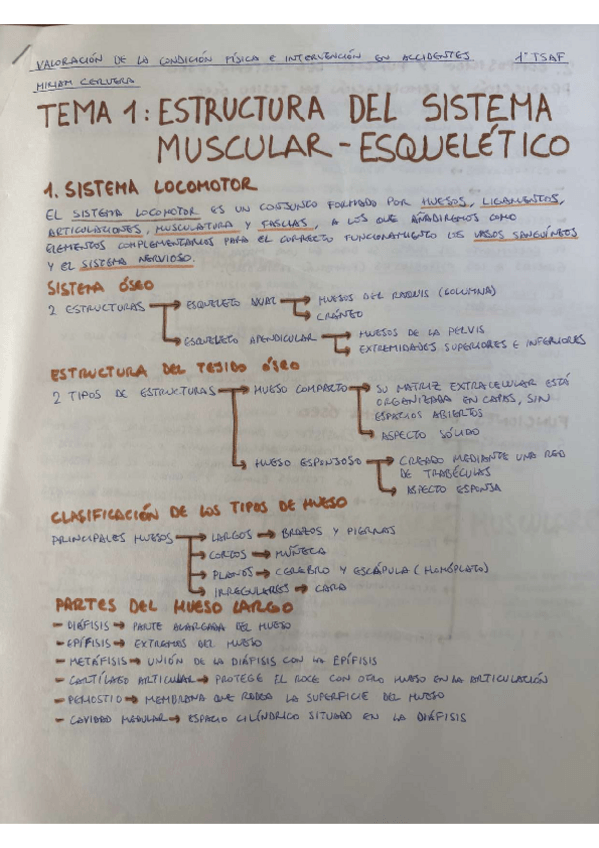 VALORACIÓN DE LA CONDICIÓN FÍSICA E INTERVENCIÓN EN ACCIDENTES 1º TSAF
MIRIAM CERVERA
TEMA 1: ESTRUCTURA DEL SISTEMA
MUSCULAR - ESQUELÉTICO
1. SISTEMA LOCOMOTOR
EL SISTEMA LOCOMOTOR ES UN CONJUNTO FORMADO POR HUESOS, LIGAMENTOS,
ARTICULACIONES, MUSCULATURA Y FASCIAS, A LOS QUE AÑADIREMOS COMO
ELEMENTOS COMPLEMENTARIOS PARA EL CORRECTO FUNCIONAMIENTO LOS VASOS SANGUÍNEOS
Y EL SISTEMA NERVIOSO.
SISTEMA ÓSEO
2 ESTRUCTURAS → ESQUELETO AXIAL → HUESOS DEL RAQUIS (COLUMNA)
→ CRÁNEO
→ ESQUELETO APENDICULAR → HUESOS DE LA PELVIS
→ EXTREMIDADES SUPERIORES E INFERIORES
ESTRUCTURA DEL TEJIDO ÓSEO
2 TIPOS DE ESTRUCTURAS → HUESO COMPACTO → SU MATRIZ EXTRACELULAR ESTÁ
ORGANIZADA EN CAPAS, SIN
ESPACIOS ABIERTOS
→ ASPECTO SÓLIDO
→ HUESO ESPONJOSO → CREADO MEDIANTE UNA RED
DE TRABÉCULAS
→ ASPECTO ESPONJA
CLASIFICACIÓN DE LOS TIPOS DE HUESO
PRINCIPALES HUESOS → LARGOS → BRAZOS Y PIERNAS
→ CORTOS → MUÑECA
→ PLANOS → CEREBRO Y ESCÁPULA (HOMÓPLATO)
→ IRREGULARES → CARA
PARTES DEL HUESO LARGO
- DIÁFISIS → PARTE ALARGADA DEL HUESO
- EPÍFISIS → EXTREMOS DEL HUESO
- METÁFISIS → UNIÓN DE LA DIÁFISIS CON LA EPÍFISIS
- CARTÍLAGO ARTICULAR → PROTEGE EL ROCE CON OTRO HUESO EN LA ARTICULACIÓN
- PERIOSTIO → MEMBRANA QUE RODEA LA SUPERFICIE DEL HUESO
- CAVIDAD MEDULAR → ESPACIO CILÍNDRICO SITUADO EN LA DIÁFISIS